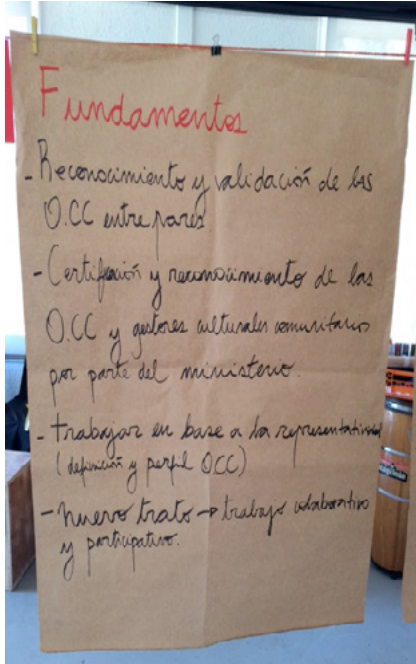 Fundamentos
- Reconocimiento y validación de las
O.CC entre pares.
- Certificación y reconocimiento de las
O.CC y gestores culturales comunitarios
por parte del ministerio.
- trabajar en base a la representatividad
(definición y perfil OCC)
- nuevo trato → trabajo colaborativo
y participativo.